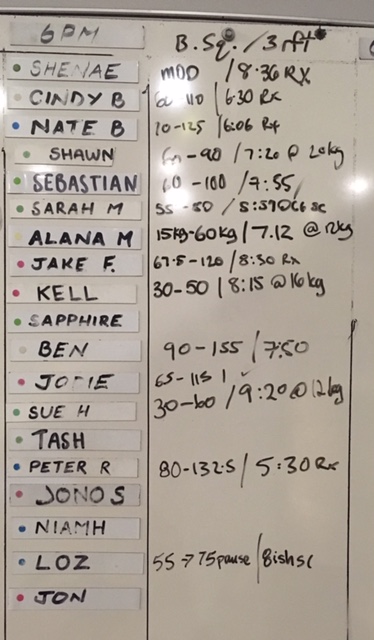 6PM B.Sq. / 3 rft*
SHENAE MOD / 8:36 RX
CINDY B 110 / 6:30 Rx
NATE B 70-125 / 6:06 Rx
SHAWN 60-90 / 7:20 @ 20kg
SEBASTIAN 60-100 / 7:55
SARAH M 55-80 /
ALANA M 15kg-60kg / 7.12 @ 12kg
JAKE F. 67.5-120 / 8:30 Rx
KELL 30-50 / 8:15 @ 16kg
SAPPHIRE
BEN 90-155 / 7:50
JODIE 65-115 /
SUE H 30-60 / 9:20 @ 12kg
TASH
PETER R 80-132.5 / 5:30 Rx
JONO S
NIAMH
LOZ 55 → 75 pause / 8ish sc
JON